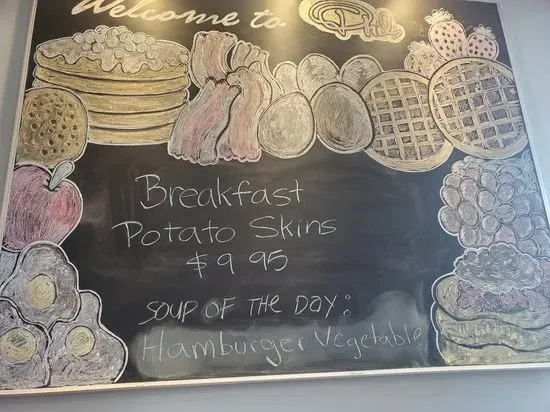 Welcome to
Breakfast
Potato Skins
$9.95
SOUP OF THE DAY:
Hamburger Vegetable